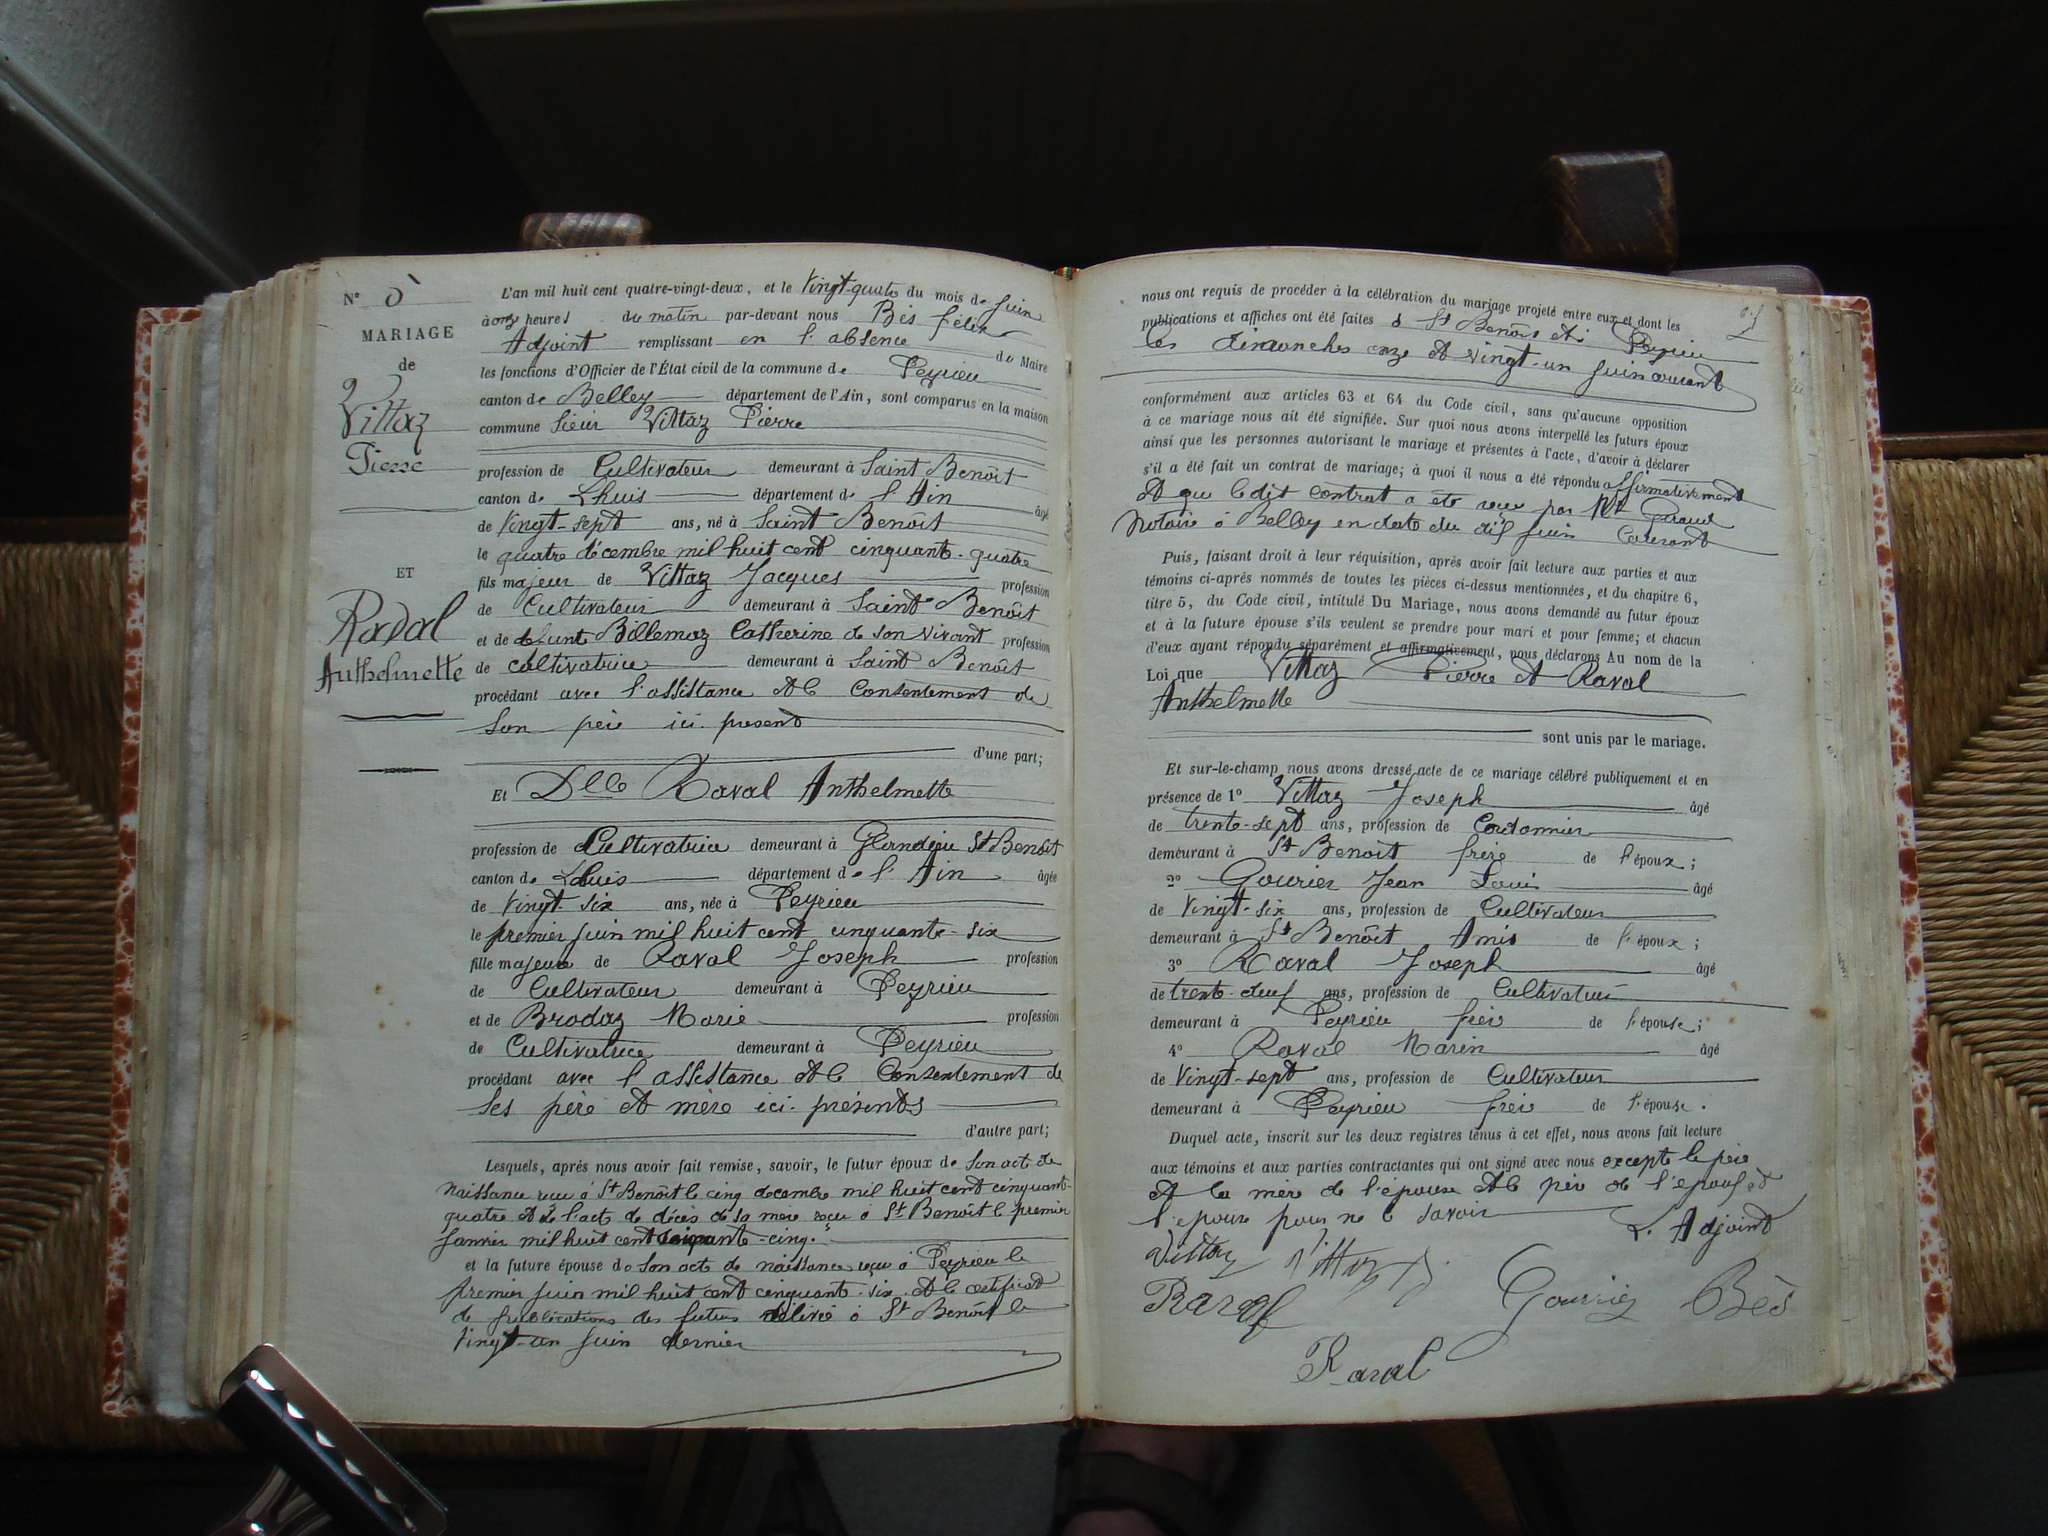 N° 5
MARIAGE
de
Vittaz
Pierre
ET
Raval
Anthelmette
L'an mil huit cent quatre-vingt-deux, et le vingt-quatre du mois de juin
à onze heures du matin par-devant nous Bès félix
Adjoint remplissant en l'absence du Maire
les fonctions d'Officier de l'État civil de la commune de Peyrieu
canton de Belley département de l'Ain, sont comparus en la maison
commune Sieur Vittaz Pierre
profession de Cultivateur demeurant à Saint Benoît
canton de Lhuis département de l'Ain âgé
de vingt-sept ans, né à Saint Benoît
le quatre décembre mil huit cent cinquante-quatre
fils majeur de Vittaz Jacques profession
de Cultivateur demeurant à Saint Benoît
et de defunte Billemaz Catherine de son vivant profession
de cultivatrice demeurant à Saint Benoît
procédant avec l'assistance et le Consentement de
son père ici présent
d'une part;
Et Dlle Raval Anthelmette
profession de Cultivatrice demeurant à Glandieu St Benoît
canton de Lhuis département de l'Ain âgée
de vingt six ans, née à Peyrieu
le premier juin mil huit cent cinquante-six
fille majeure de Raval Joseph profession
de Cultivateur demeurant à Peyrieu
et de Brodaz Marie profession
de Cultivatrice demeurant à Peyrieu
procédant avec l'assistance et le Consentement de
ses père et mère ici présents
d'autre part;
Lesquels, après nous avoir fait remise, savoir, le futur époux de son acte de
naissance reçu à St Benoît le cinq decembre mil huit cent cinquante-
quatre et de l'acte de décès de sa mère reçu à St Benoît le premier
janvier mil huit cent soixante-cinq.
et la future épouse de son acte de naissance reçu à Peyrieu le
premier juin mil huit cent cinquante-six. et le certificat
de publications des futurs délivré à St Benoît le
vingt-un juin dernier
nous ont requis de procéder à la célébration du mariage projeté entre eux et dont les
publications et affiches ont été faites à St Benoît et à Peyrieu
les dimanches onze et vingt-un juin courant
conformément aux articles 63 et 64 du Code civil, sans qu'aucune opposition
à ce mariage nous ait été signifiée. Sur quoi nous avons interpellé les futurs époux
ainsi que les personnes autorisant le mariage et présentes à l'acte, d'avoir à déclarer
s'il a été fait un contrat de mariage; à quoi il nous a été répondu affirmativement
et que le dit contrat a été reçu par Me
Notaire à Belley en date du dix juin Courant
Puis, faisant droit à leur réquisition, après avoir fait lecture aux parties et aux
témoins ci-après nommés de toutes les pièces ci-dessus mentionnées, et du chapitre 6,
titre 5, du Code civil, intitulé Du Mariage, nous avons demandé au futur époux
et à la future épouse s'ils veulent se prendre pour mari et pour femme; et chacun
d'eux ayant répondu séparément et affirmativement, nous déclarons Au nom de la
Loi que Vittaz Pierre et Raval
Anthelmette
sont unis par le mariage.
Et sur-le-champ nous avons dressé acte de ce mariage célébré publiquement et en
présence de 1° Vittaz Joseph âgé
de trente-sept ans, profession de Cordonnier
demeurant à St Benoît frère de l'époux;
2° Gourier Jean Louis âgé
de vingt-six ans, profession de Cultivateur
demeurant à St Benoît Amis de l'époux;
3° Raval Joseph âgé
de trente-deux ans, profession de Cultivateur
demeurant à Peyrieu frère de l'épouse;
4° Raval Marin âgé
de vingt-sept ans, profession de Cultivateur
demeurant à Peyrieu frère de l'épouse.
Duquel acte, inscrit sur les deux registres tenus à cet effet, nous avons fait lecture
aux témoins et aux parties contractantes qui ont signé avec nous excepté le père
et la mère de l'épouse et le père de l'époux et
l'épouse pour ne le savoir
L'Adjoint
Vittaz Vittaz J.
Raval Gourrier Bès
Raval